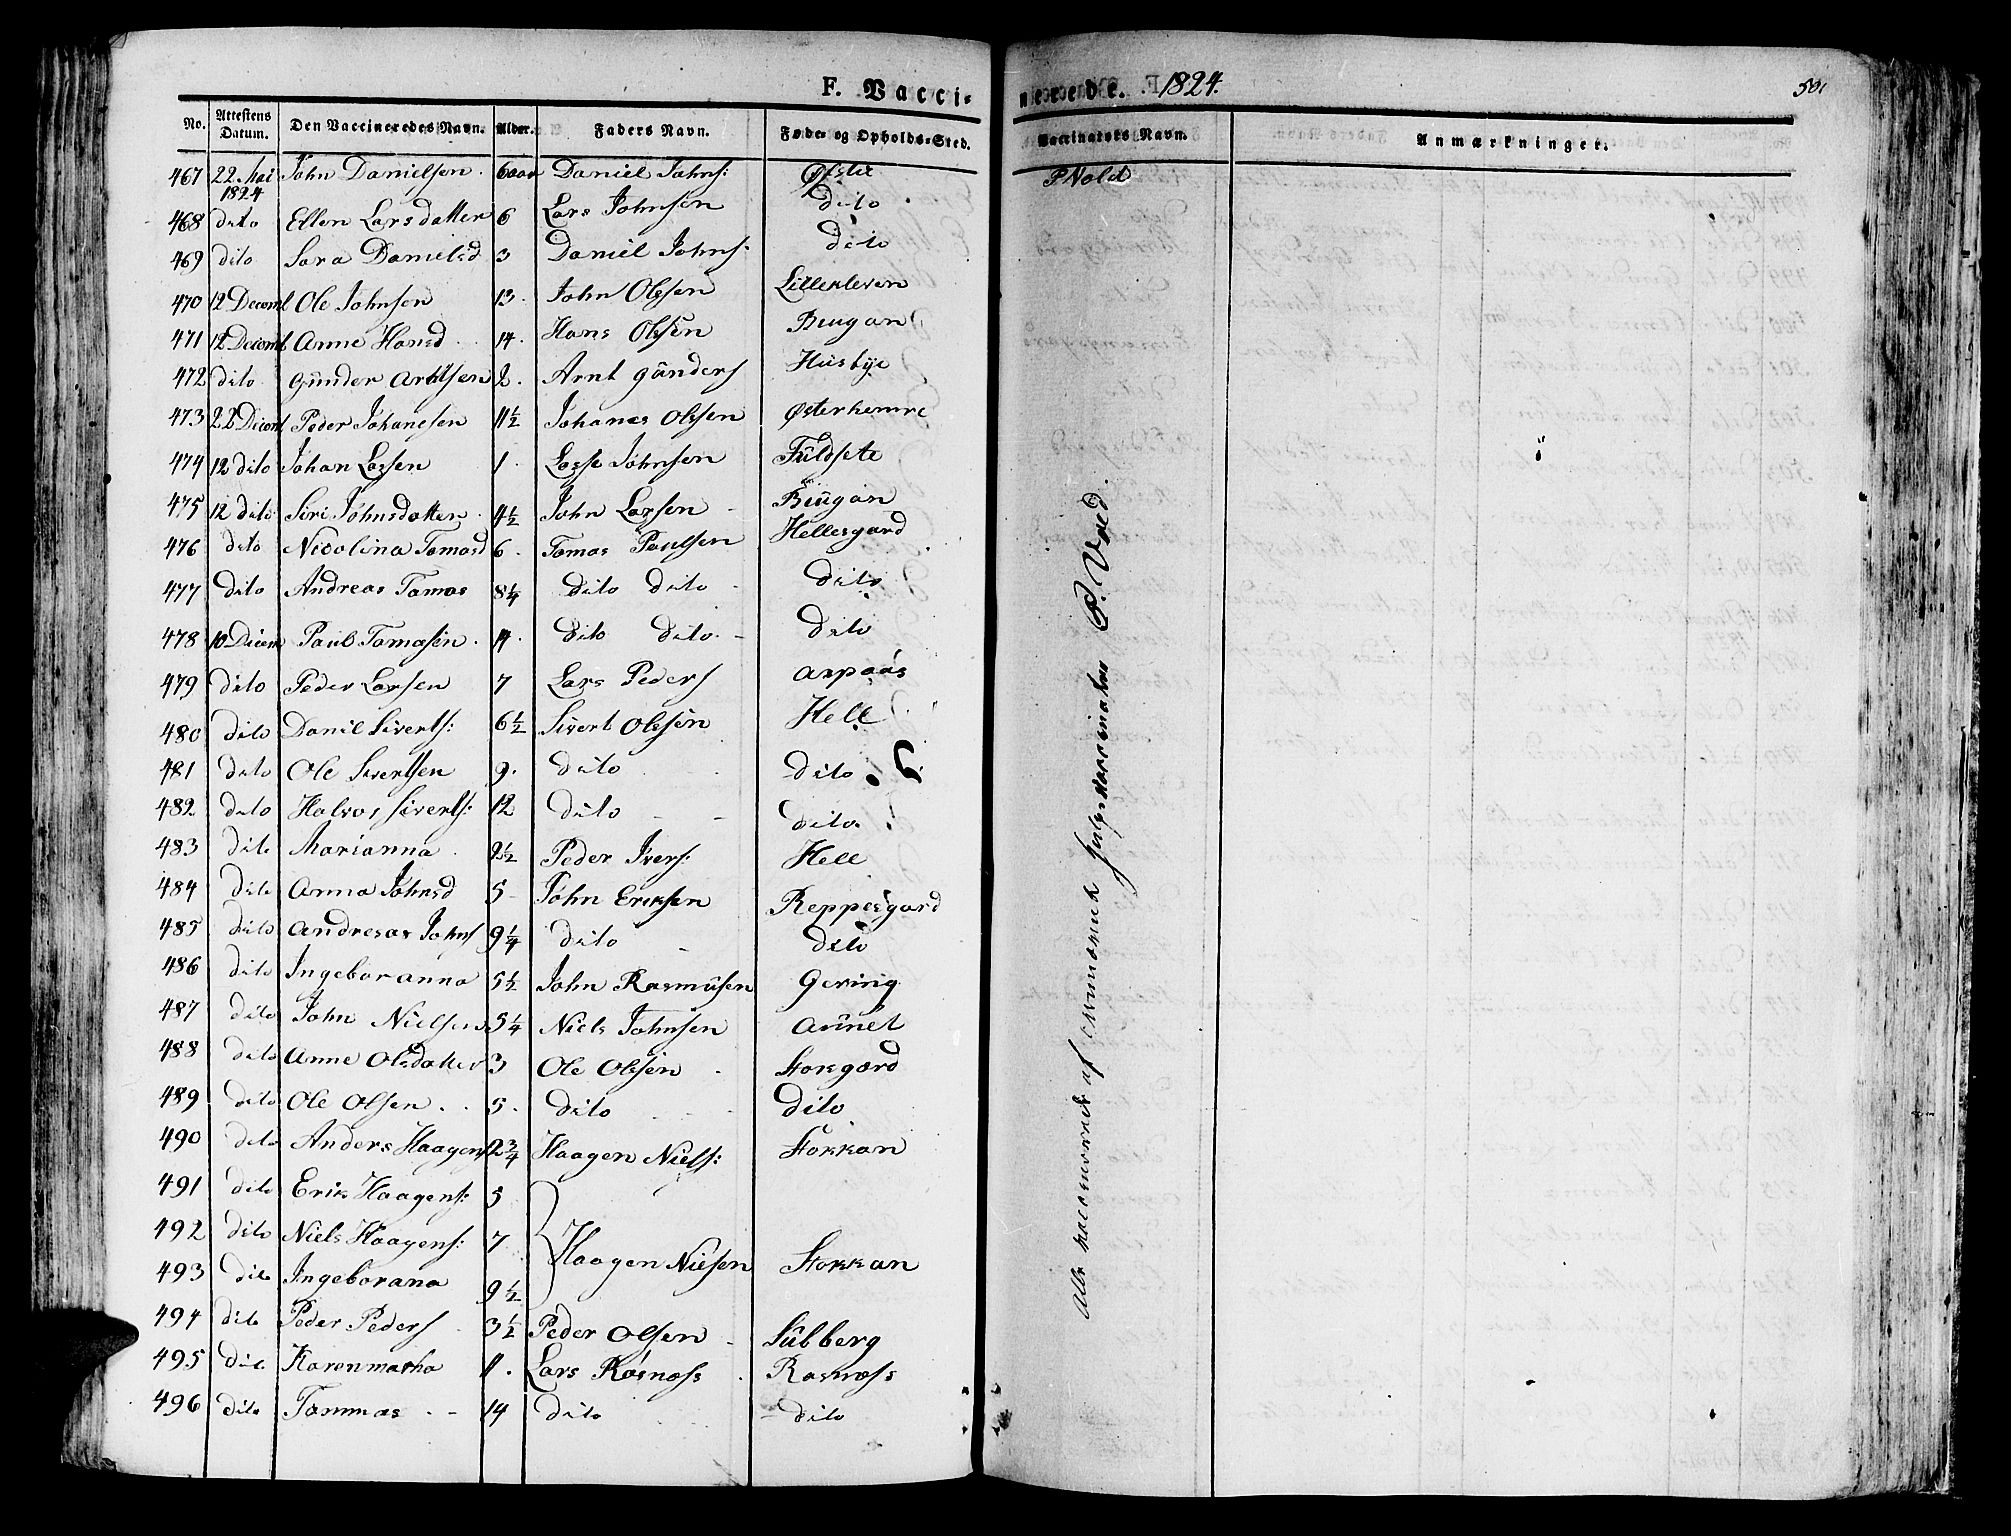 F. Vacci- nerede. 1824. 501
No. Attestens Datum. Den Vaccineredes Navn. Alder. Faders Navn. Føde- og Opholds-Sted. Vaccinatørs Navn. Anmærkninger.
467 22. Mai 1824 John Danielsen. 6 aar Daniel Johns: Øfstie
468 dito Ellen Larsdatter 6 Lars Johnsen dito
469 dito Sara Danielsd 3 Daniel Johns: dito
470 12 Decembl Ole Johnsen 13. John Olssen Lillekleven
471 12 Decembl Anne Hansd 14. Hans Olssen Biugan
472 dito Gunder Arntsen 2. Arnt Gunders Husbye
473 22 Deceml Peder Johanesen 11½ Johanes Olssen Østerkemre
474 12 dito Johan Lassen 1. Lasse Johnsen Fuldsete
475 12 dito Siri Johnsdatter 4½ John Larsen Biugan
476 dito Nicolina Tomasd 6. Tomas Paulsen Hellesgard
477 dito Andreas Tomas 8¼ dito dito dito
478 10 Decem Paul Tomasen. 14. dito dito dito
479 dito Peder Larsen 7 Lars Peders Arpaas
480 dito Daniel Siverts: 6½ Sivert Olssen Hell
481 dito Ole Sivertsen 9. dito dito
482 dito Halvor Siverts: 12 dito dito.
483 dito Marianna 2½ Peder Ivers: Hell
484 dito Anna Johnsd 5 John Eriksen Reppesgard
485 dito Andreas Johns 9¼ dito dito
486 dito Ingeboranna 5½ John Rasmusen Gering
487 dito John Nielsen 5¼ Niels Johnsen Aunet
488 dito Anne Olsdatter 3 Ole Olssen Storgard
489 dito Ole Olsen 5. dito dito
490 dito Anders Haagens 2¾ Haagen Niels: Stokkan
491 dito Erik Haagens: 5
492 dito Niels Haagens: 7 Haagen Nielsen Stokkan
493 dito Ingeborana 9½
494 dito Peder Peders 3½ Peder Olsen Sulberg
495 dito Karenmartha 11. Lars Rosnass Rasnass
496 dito Tommas 14 dito dito
Alle vaccinerede af P. Voed.